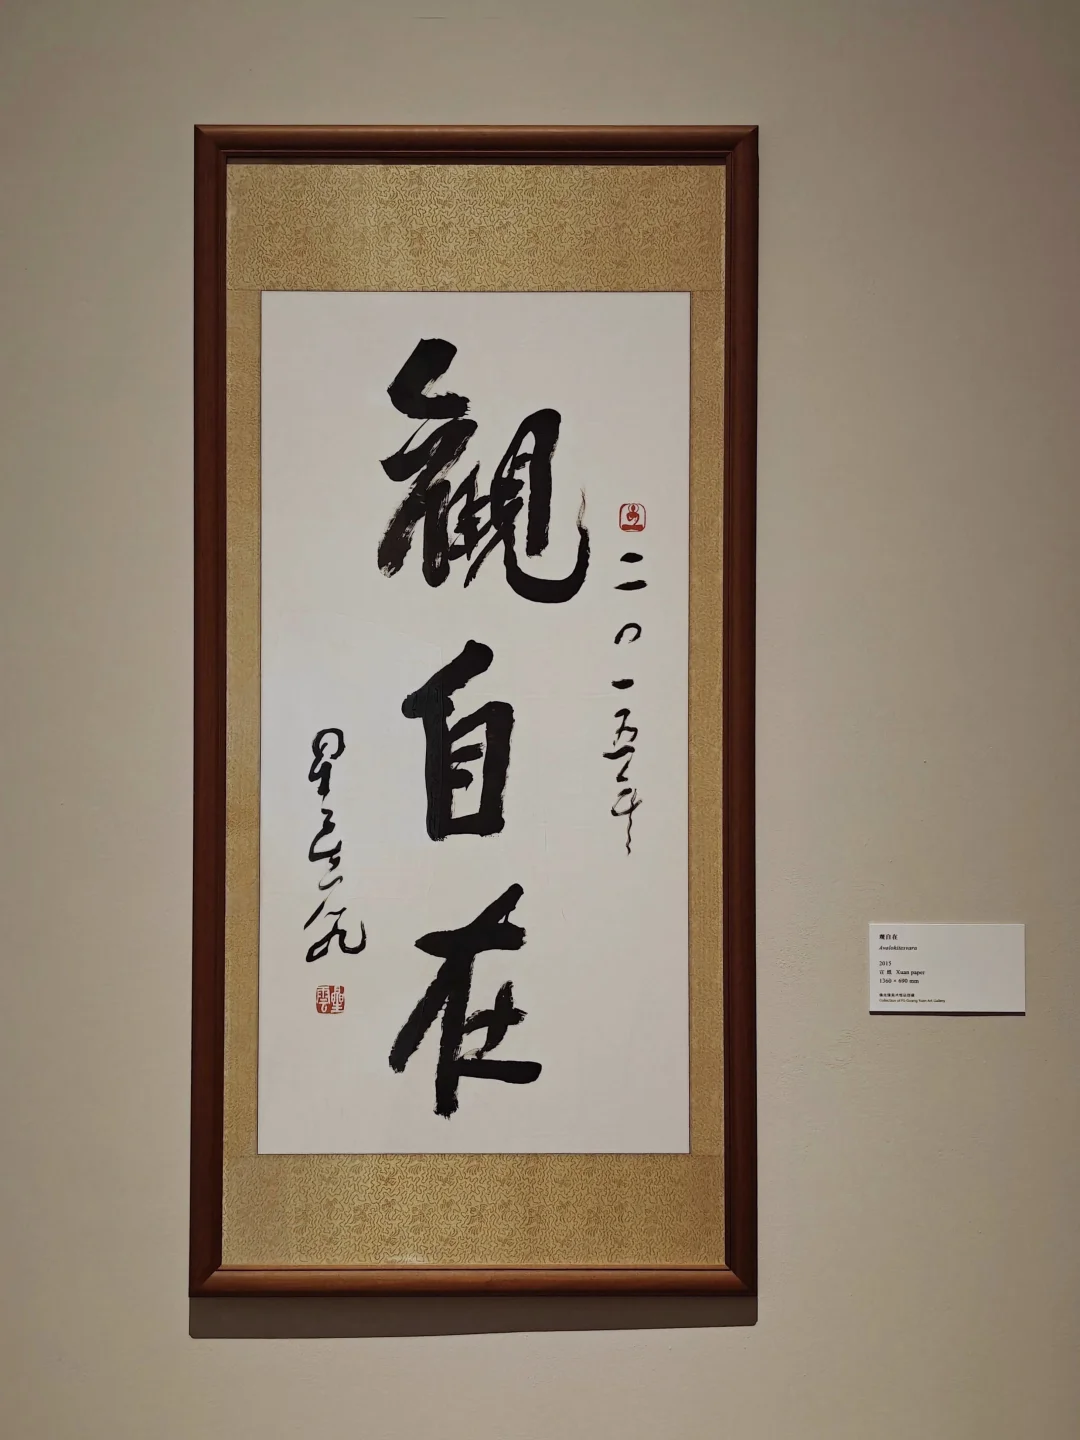 二〇一五年
觀自在
星云
星雲
觀自在
Avalokitesvara
2015
宣 紙 Xuan paper
1360 × 690 mm
Collection of Fo Guang Yuan Art Gallery